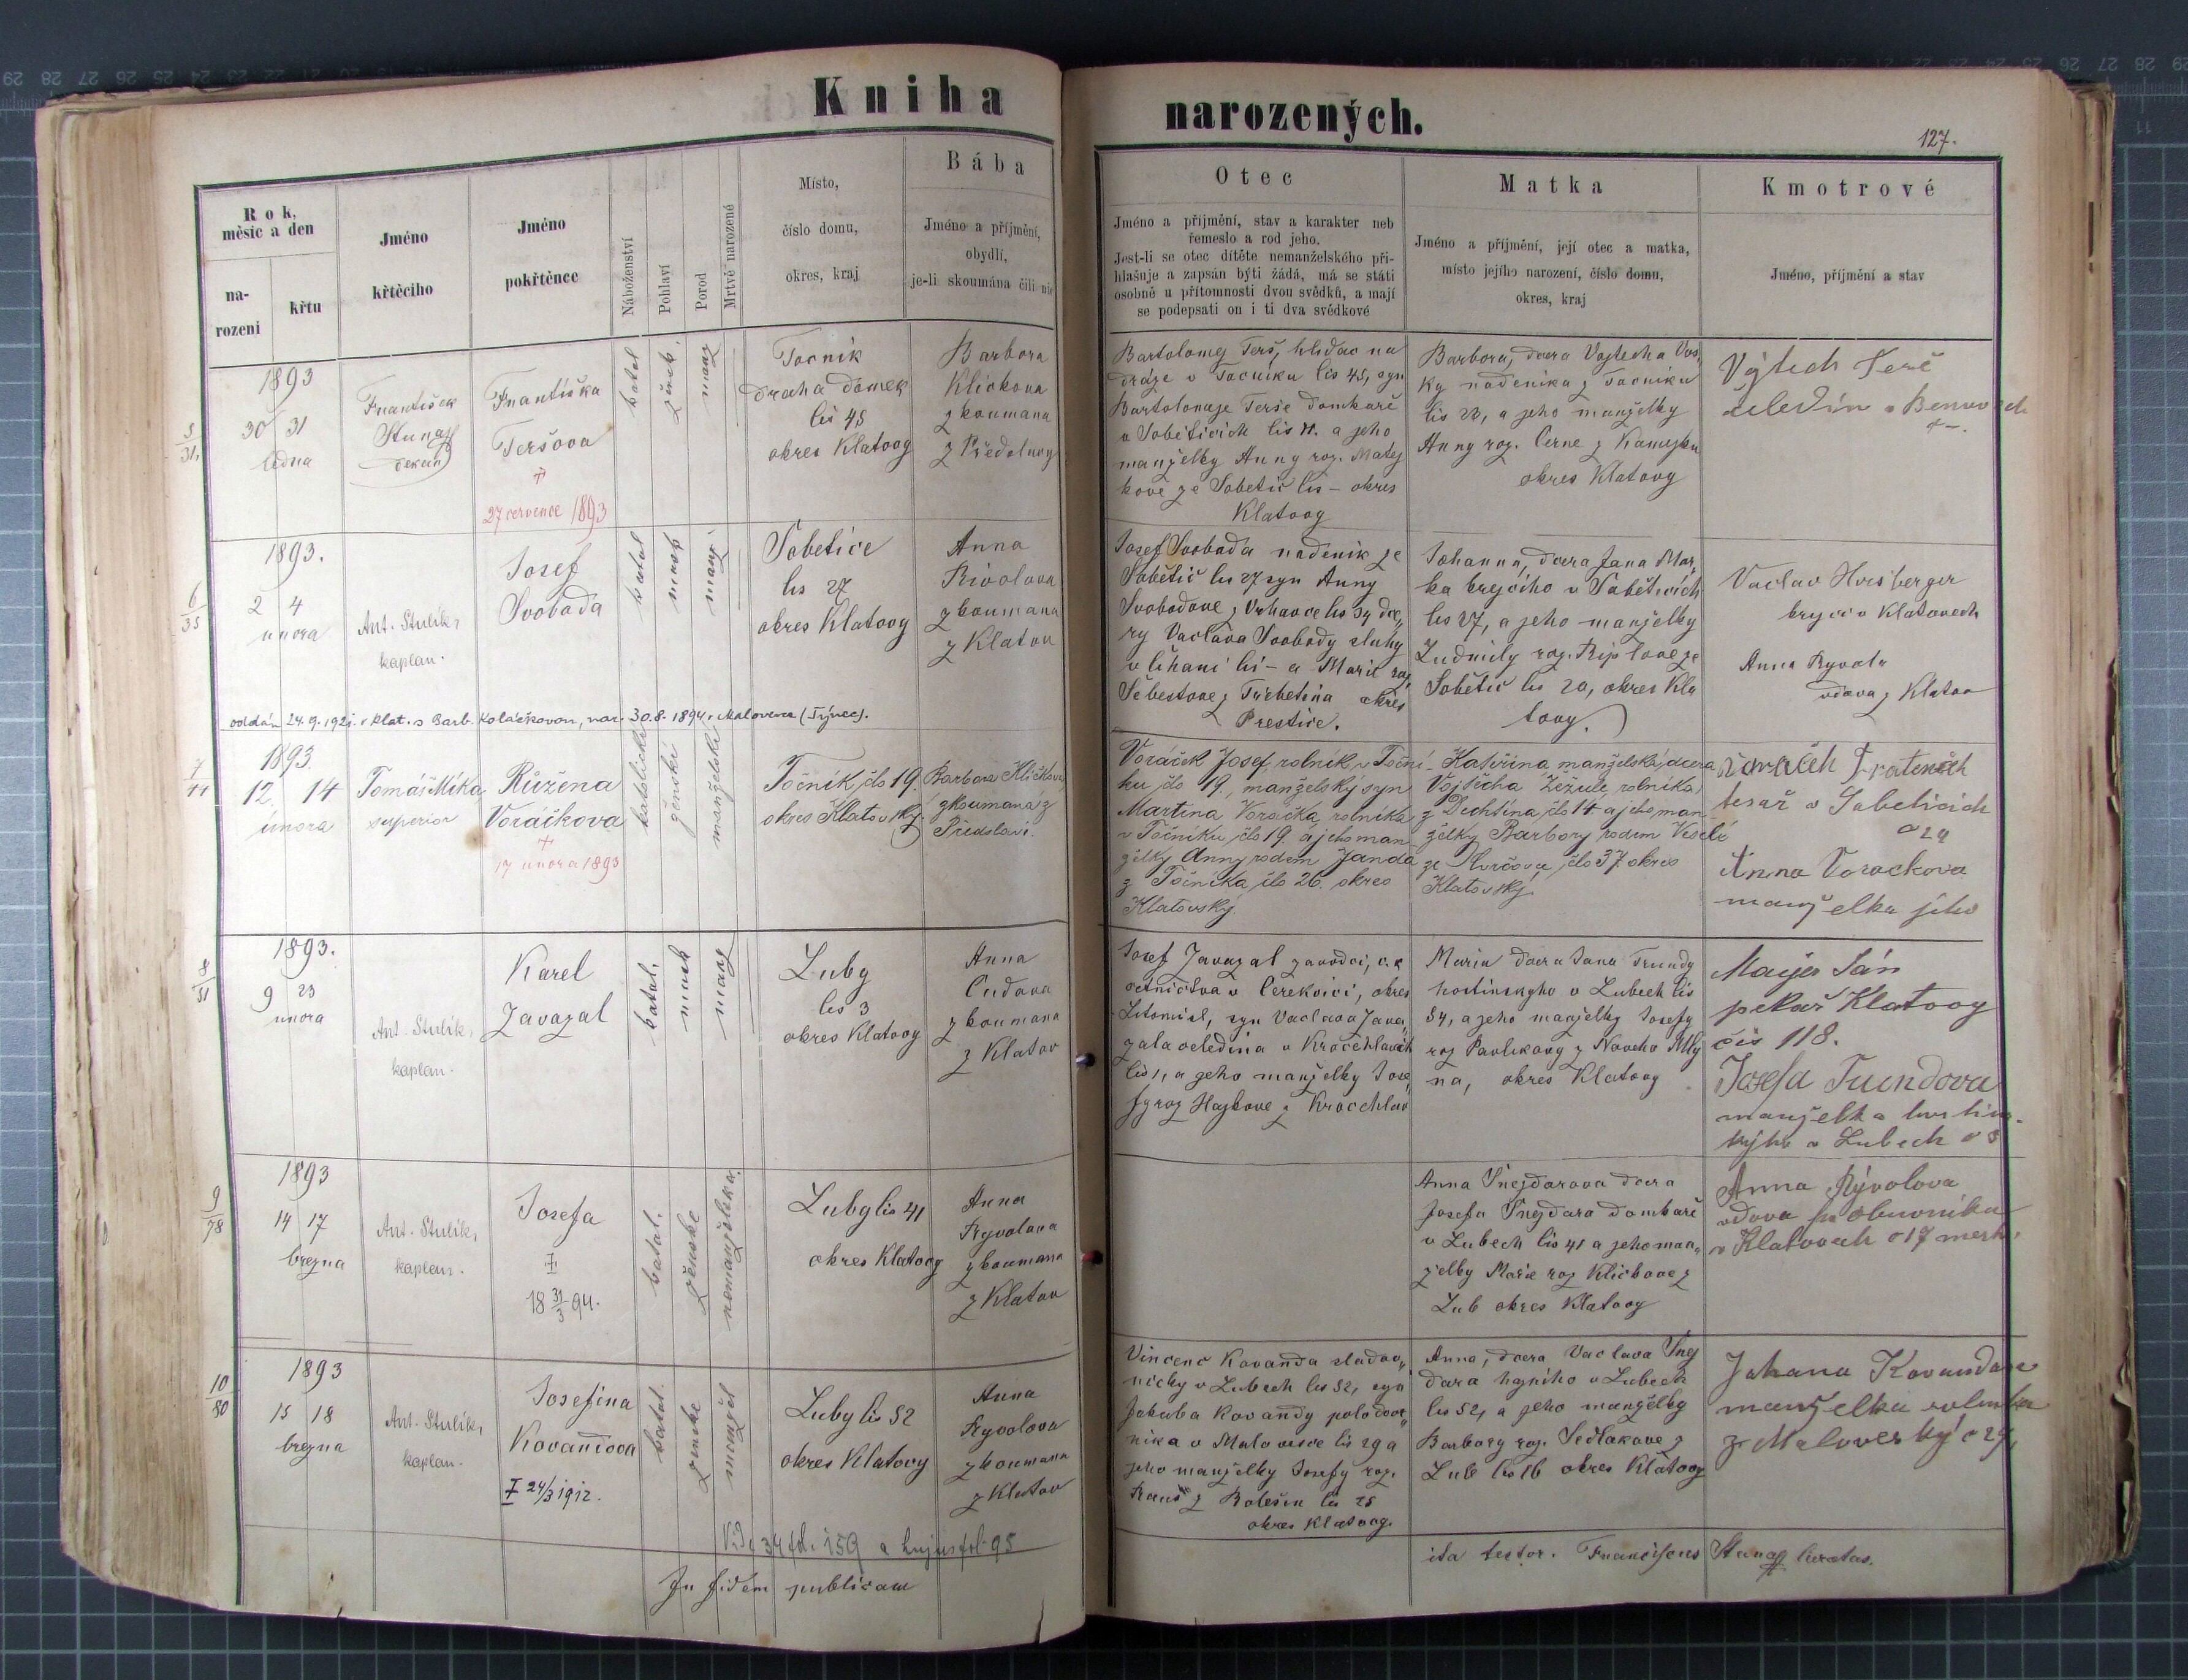 Kniha narozených.
127.
Rok, měsíc a den
na-
rození
křtu
Jméno
křtěcího
Jméno
pokřtěnce
Náboženství
Pohlaví
Porod
Mrtvě narozené
Místo,
číslo domu,
okres, kraj
Bába
Jméno a příjmení,
obydlí,
je-li skoumána čili nic
Otec
Jméno a příjmění, stav a karakter neb
řemeslo a rod jeho.
Jest-li se otec dítěte nemanželského při-
hlašuje a zapsán býti žádá, má se státi
osobně u přítomnosti dvou svědků, a mají
se podepsati on i ti dva svědkové
Matka
Jméno a příjmění, její otec a matka,
místo jejího narození, číslo domu,
okres, kraj
Kmotrové
Jméno, příjmění a stav
5
31.
1893
30 31
ledna
František
děkan
Františka
Teršova
+
27 července 1893
katol
žensk.
manž
Točnik
draha domek
čís 45
okres Klatovy
Barbora
Kličkova
zkoumana
z Předslavy
Bartolomej Terš, hlídač na
dráze v Točniku čís 45, syn
Bartolomeje Terše domkaře
v Soběticich čís 11. a jeho
manželky Anny roz. Matěj
kove ze Sobětic čís – okres
Klatovy
Barbora, dcera Vojtecha Vos„
ky nadenika z Točniku
čís 23, a jeho manželky
Anny roz. Černe z Kamejku
okres Klatovy
Vojtech Terš
čeledín
6
35
1893.
2 4
unora
Ant. Stulík,
kaplan.
Josef
Svoboda
katol
mužsk
manž
Sobetice
čís 27
okres Klatovy
Anna
Rivolova
zkoumana
z Klatov
Josef Svoboda nadenik ze
Sobětic čís 27 syn Anny
Svobodove z Vrhavče čís 34 dce„
ry Vaclava Svobody sluhy
v Lhani čís – a Marie roz.
Šebestove z Třebetína okres
Prestice.
Johanna, dcera Jana Mar„
ka krejčího v Sobětících
čís 27, a jeho manželky
Ludmily roz. Riplove ze
Sobětic čís 20, okres Kla
tovy.
Vaclav Hirsberger
krejci v Klatovech
Anna Ryvola
vdova z Klatov
oddán 24.9.1921 v Klat. s Barb. Koláčkovou, nar. 30.8.1894 v Malovesce (Týnec).
7
44
1893
12. 14
února
Tomáš Míka
superior
Růžena
Voráčkova
+
17 unora 1893
katolické
ženské
manželské
Točník, čslo 19.
okres Klatovský
Barbora Kličkova,
zkoumaná z
Předslavi.
Voráček Josef, rolník v Točni-
ku čslo 19., manželský syn
Martina Voračka, rolníka
v Točniku, čslo 19. a jeho man
želky Anny rodem Janda
z Točníka, čslo 26. okres
Klatovský.
Kateřina manželská dcera
Vojtěcha Žežule, rolníka
z Dechtína, čslo 14 a jeho man-
želky Barbory rodem Veselé
ze Svrčovce, čslo 37. okres
Klatovský.
tesař v Sobeticich
č 24
Anna Vorackova
manželka jeho
8
51
1893.
9 23
unora
Ant. Stulík,
kaplan.
Karel
Zavazal
katol.
mužsk
manž
Luby
čís 3
okres Klatovy
Anna
Cudova
zkoumana
z Klatov
Josef Zavazal zavodčí, c.k
četnictva v Cerekvici, okres
Litomisl, syn Vaclava Zava„
zala čeledína v Krochlavich
čís 1, a jeho manželky Jose„
fy roz Hajkove z Krochlav
Marie dcera Jana Trundy
hostinskyho v Lubech čís
54, a jeho manželky Josefy
roz Pavlikovy z Noveho Mly
na, okres Klatovy
Majer Ján
pekař Klatovy
čís 118.
Josefa Trundova
manželka hostin-
kýho v Lubech č 3
9
78
1893
14 17
brezna
Ant. Stulík,
kaplan.
Josefa
18 31/3 94.
katol.
ženske
nemanželska.
Luby čís 41
okres Klatovy
Anna
Ryvolova
zkoumana
z Klatov
Anna Šnejdarova dcera
Josefa Šnejdara domkaře
v Lubech čís 41 a jeho man„
želky Marie roz Kličkove z
Lub okres Klatovy
Anna Rývolova
vdova po obuvníku
v Klatovech č 17
10
80
1893
15 18
brezna
Ant. Stulík,
kaplan.
Josefina
Kovandova
24/3 1912.
katol.
ženske
Luby čís 52
okres Klatovy
Anna
Ryvolova
zkoumana
z Klatov
Vincenc Kovanda sladov„
nicky v Lubech čís 52, syn
Jakuba Kovandy polodvor„
nika v Malovesce čís 29 a
jeho manželky Josefy roz.
z Bolešin čís 25
okres Klatovy.
Anna, dcera Vaclava Šnej
dara hajního v Lubech
čís 52, a jeho manželky
Barbory roz. Sedlakove z
Lub čís 16 okres Klatovy
Johana Kovandova
manželka rolníka
z Malovesky č 29,
fol. 159 a hujus fol. 95
In fidem publicam
ita testor. Franciscus